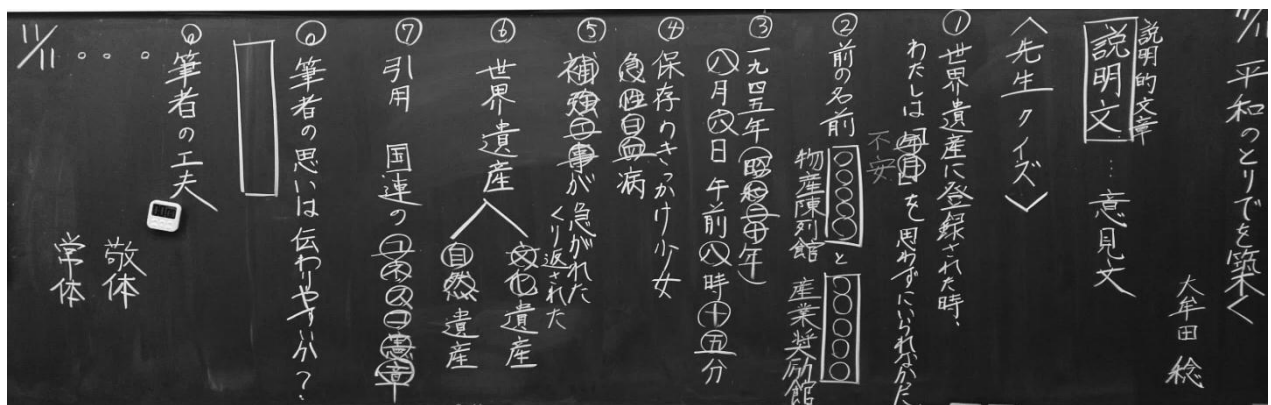 11/11 平和のとりでを築く
大牟田 稔
説明的文章
説明文…意見文
〈先生クイズ〉
① 世界遺産に登録された時、
わたしは を思わずにいられなかった。
不安
② 前の名前 ○○○○○ と ○○○○○
物産陳列館 産業奨励館
③ 一九四五年(昭和二十年)
八月六日 午前八時十五分
④ 保存のきっかけ 少女
急性白血病
⑤ 補強工事が 急がれた
くり返された
⑥ 世界遺産
文化遺産
自然遺産
⑦ 引用 国連のユネスコ憲章
◎ 筆者の思いは伝わりやすいか?
◎ 筆者の工夫
敬体
常体
11/11 。。。